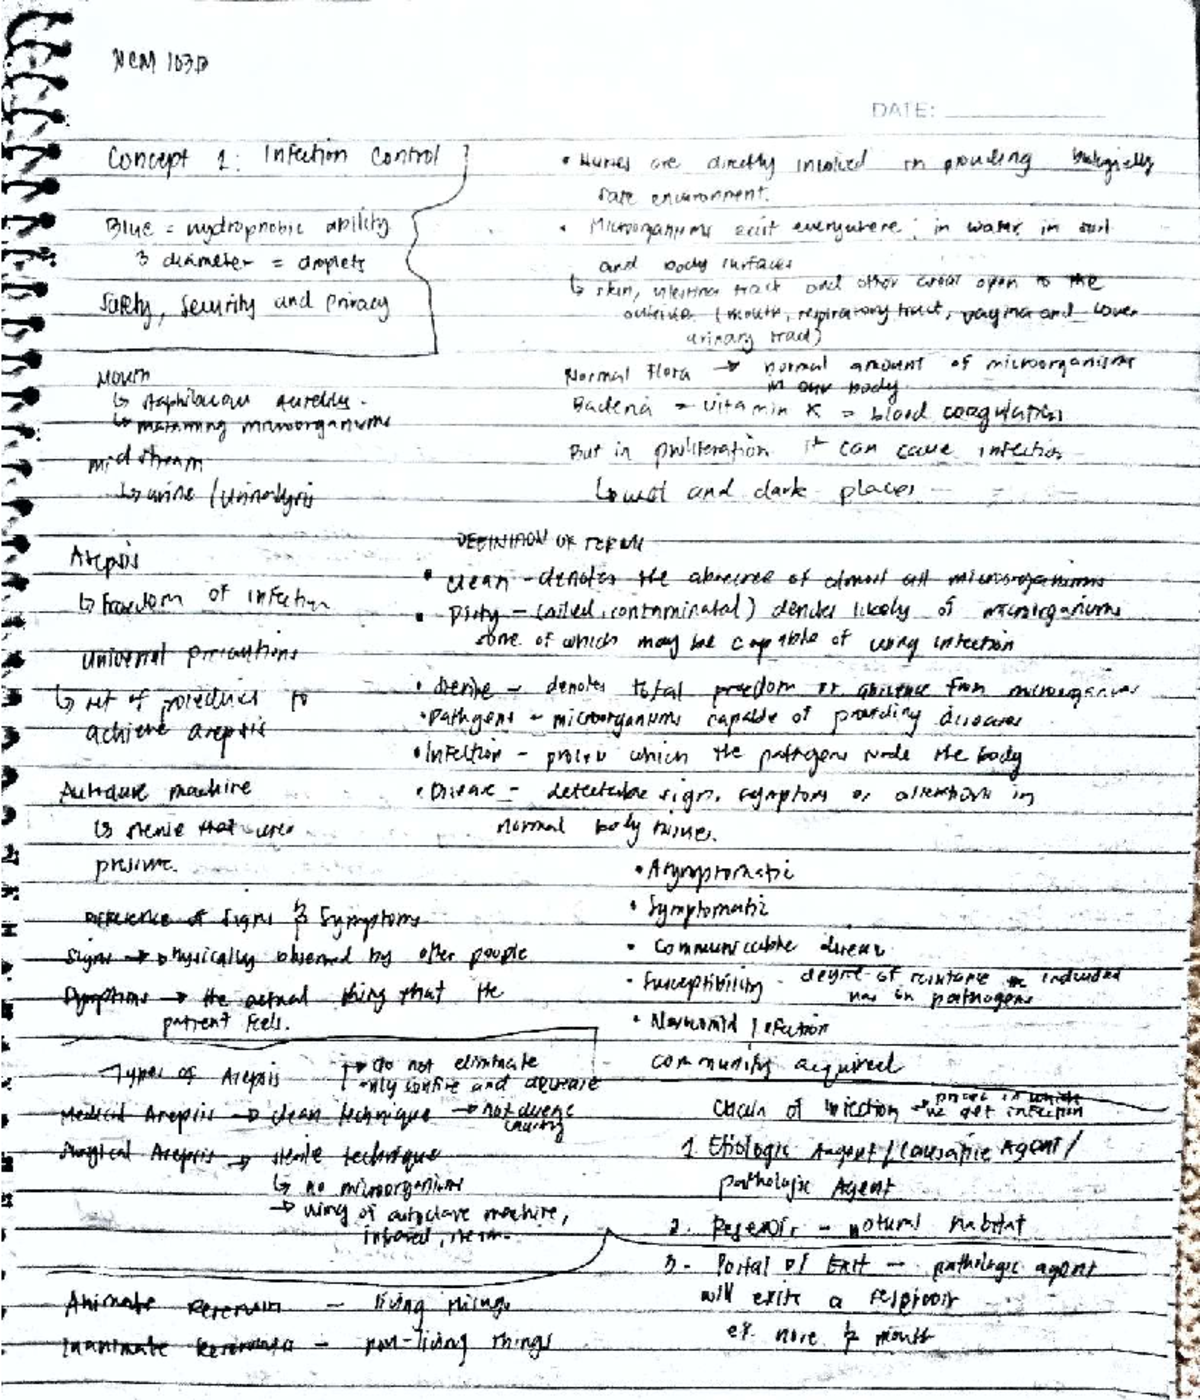 NCM 103B
DATE:
Concept 1: Infection Control
Blue = hydrophobic ability
3 diameter = droplets
Safety, Security and Privacy
Mouth
↳
↳ microorganisms
mid stream
↳ urine / urinalysis
Asepsis
↳ freedom of infection
universal precautions
↳ set of procedures to
achieve asepsis
Autoclave machine
↳ that uses
pressure.
Difference of Signs & Symptoms
Signs → physically observed by other people
Symptoms → the actual thing that the
patient feels.
Types of Asepsis
→ do not eliminate
only confine and decrease
Medical Asepsis → clean technique →
Surgical Asepsis → sterile technique
↳ no microorganisms
→ using of autoclave machine,
Animate Reservoir - living things
Inanimate Reservoir - non-living things
• Nurses are directly involved in providing biologically
safe environment.
• Microorganisms exist everywhere; in water, in soil
and body surfaces
↳ skin, intestinal tract and other areas open to the
outside (mouth, respiratory tract, vagina and lower
urinary tract)
Normal Flora → normal amount of microorganisms
in our body
Bacteria = vitamin K = blood coagulation
But in proliferation it can cause infection
↳ wet and dark places
DEFINITION OF TERMS
• clean - denotes the absence of almost all microorganisms
• Dirty - (soiled, contaminated) denotes likely of microorganisms
some of which may be capable of infection
• Sterile - denotes total freedom or absence from microorganisms
• Pathogens - microorganisms capable of diseases
• Infection - process which the pathogens the body
• Disease - detectable signs, symptoms or alterations in
normal body tissues.
• Asymptomatic
• Symptomatic
• Communicable disease
• Susceptibility - degree of resistance individual
has in pathogens
• Nosocomial infection
community acquired
Chain of Infection → process in which
we get infection
1. Etiologic Agent / Causative Agent /
pathologic Agent
2. Reservoir - natural habitat
3. Portal of Exit - pathologic agent
will exits a
ex. nose & mouth